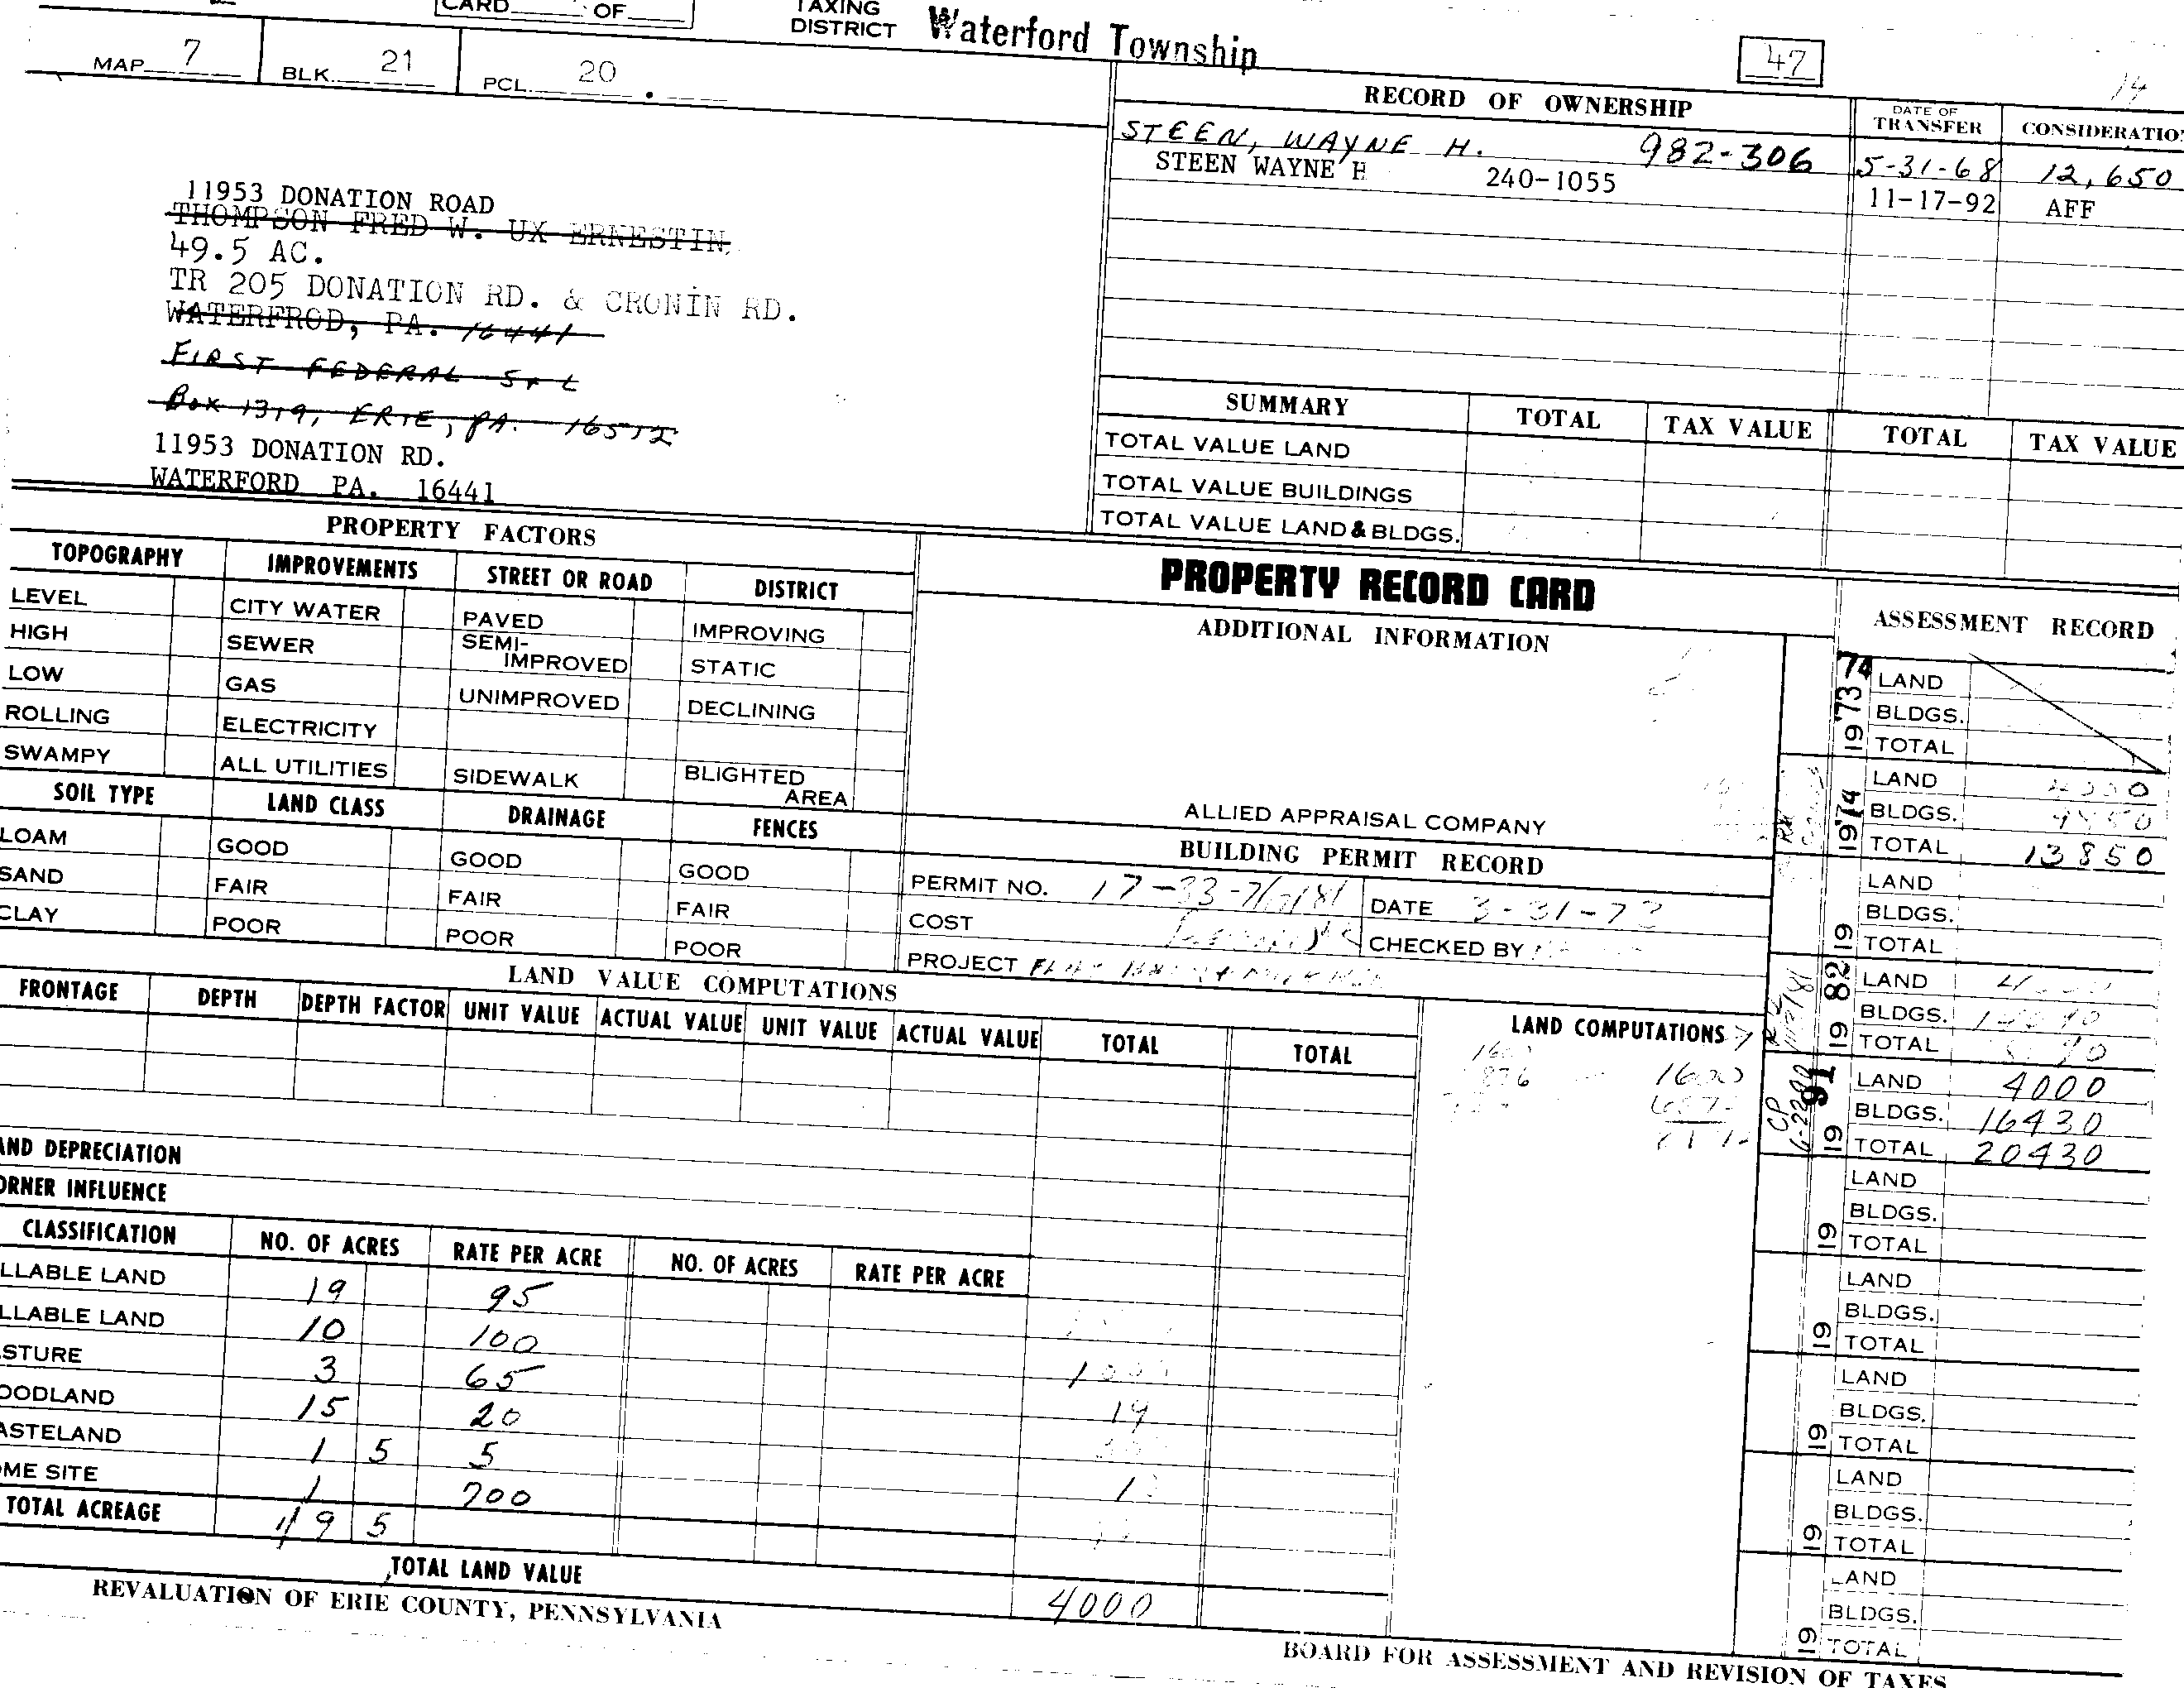 CARD OF
TAXING
DISTRICT Waterford Township
47
14
MAP 7 BLK. 21 PCL. 20 .
RECORD OF OWNERSHIP DATE OF TRANSFER CONSIDERATIO
STEEN, WAYNE H. 982-306 5-31-68 12,650
STEEN WAYNE H 240-1055 11-17-92 AFF
11953 DONATION ROAD
THOMPSON FRED W. UX ERNESTIN
49.5 AC.
TR 205 DONATION RD. & CRONIN RD.
WATERFROD, PA. 16441
FIRST FEDERAL S+L
BOX 1319, ERIE, PA. 16512
11953 DONATION RD.
WATERFORD PA. 16441
SUMMARY TOTAL TAX VALUE TOTAL TAX VALUE
TOTAL VALUE LAND
TOTAL VALUE BUILDINGS
TOTAL VALUE LAND & BLDGS.
PROPERTY FACTORS
TOPOGRAPHY IMPROVEMENTS STREET OR ROAD DISTRICT
LEVEL CITY WATER PAVED IMPROVING
HIGH SEWER SEMI-IMPROVED STATIC
LOW GAS UNIMPROVED DECLINING
ROLLING ELECTRICITY
SWAMPY ALL UTILITIES SIDEWALK BLIGHTED AREA
SOIL TYPE LAND CLASS DRAINAGE FENCES
LOAM GOOD GOOD GOOD
SAND FAIR FAIR FAIR
CLAY POOR POOR POOR
PROPERTY RECORD CARD
ADDITIONAL INFORMATION
ALLIED APPRAISAL COMPANY
BUILDING PERMIT RECORD
PERMIT NO. 17-33- DATE 3-31-72
COST CHECKED BY
PROJECT
ASSESSMENT RECORD
1973 74 LAND
BLDGS.
TOTAL
1974 LAND
BLDGS.
TOTAL 13850
19 LAND
BLDGS.
TOTAL
19 82 LAND
BLDGS.
TOTAL
CP 6-22-90
19 91 LAND 4000
BLDGS. 16430
TOTAL 20430
19 LAND
BLDGS.
TOTAL
19 LAND
BLDGS.
TOTAL
19 LAND
BLDGS.
TOTAL
19 LAND
BLDGS.
TOTAL
19 LAND
BLDGS.
TOTAL
LAND VALUE COMPUTATIONS
FRONTAGE DEPTH DEPTH FACTOR UNIT VALUE ACTUAL VALUE UNIT VALUE ACTUAL VALUE TOTAL TOTAL
LAND COMPUTATIONS
1600
AND DEPRECIATION
ORNER INFLUENCE
CLASSIFICATION NO. OF ACRES RATE PER ACRE NO. OF ACRES RATE PER ACRE
LLABLE LAND 19 95
LLABLE LAND 10 100
STURE 3 65
OODLAND 15 20
ASTELAND 1 5 5
OME SITE 1 700
TOTAL ACREAGE 49 5
TOTAL LAND VALUE 4000
REVALUATION OF ERIE COUNTY, PENNSYLVANIA
BOARD FOR ASSESSMENT AND REVISION OF TAXES